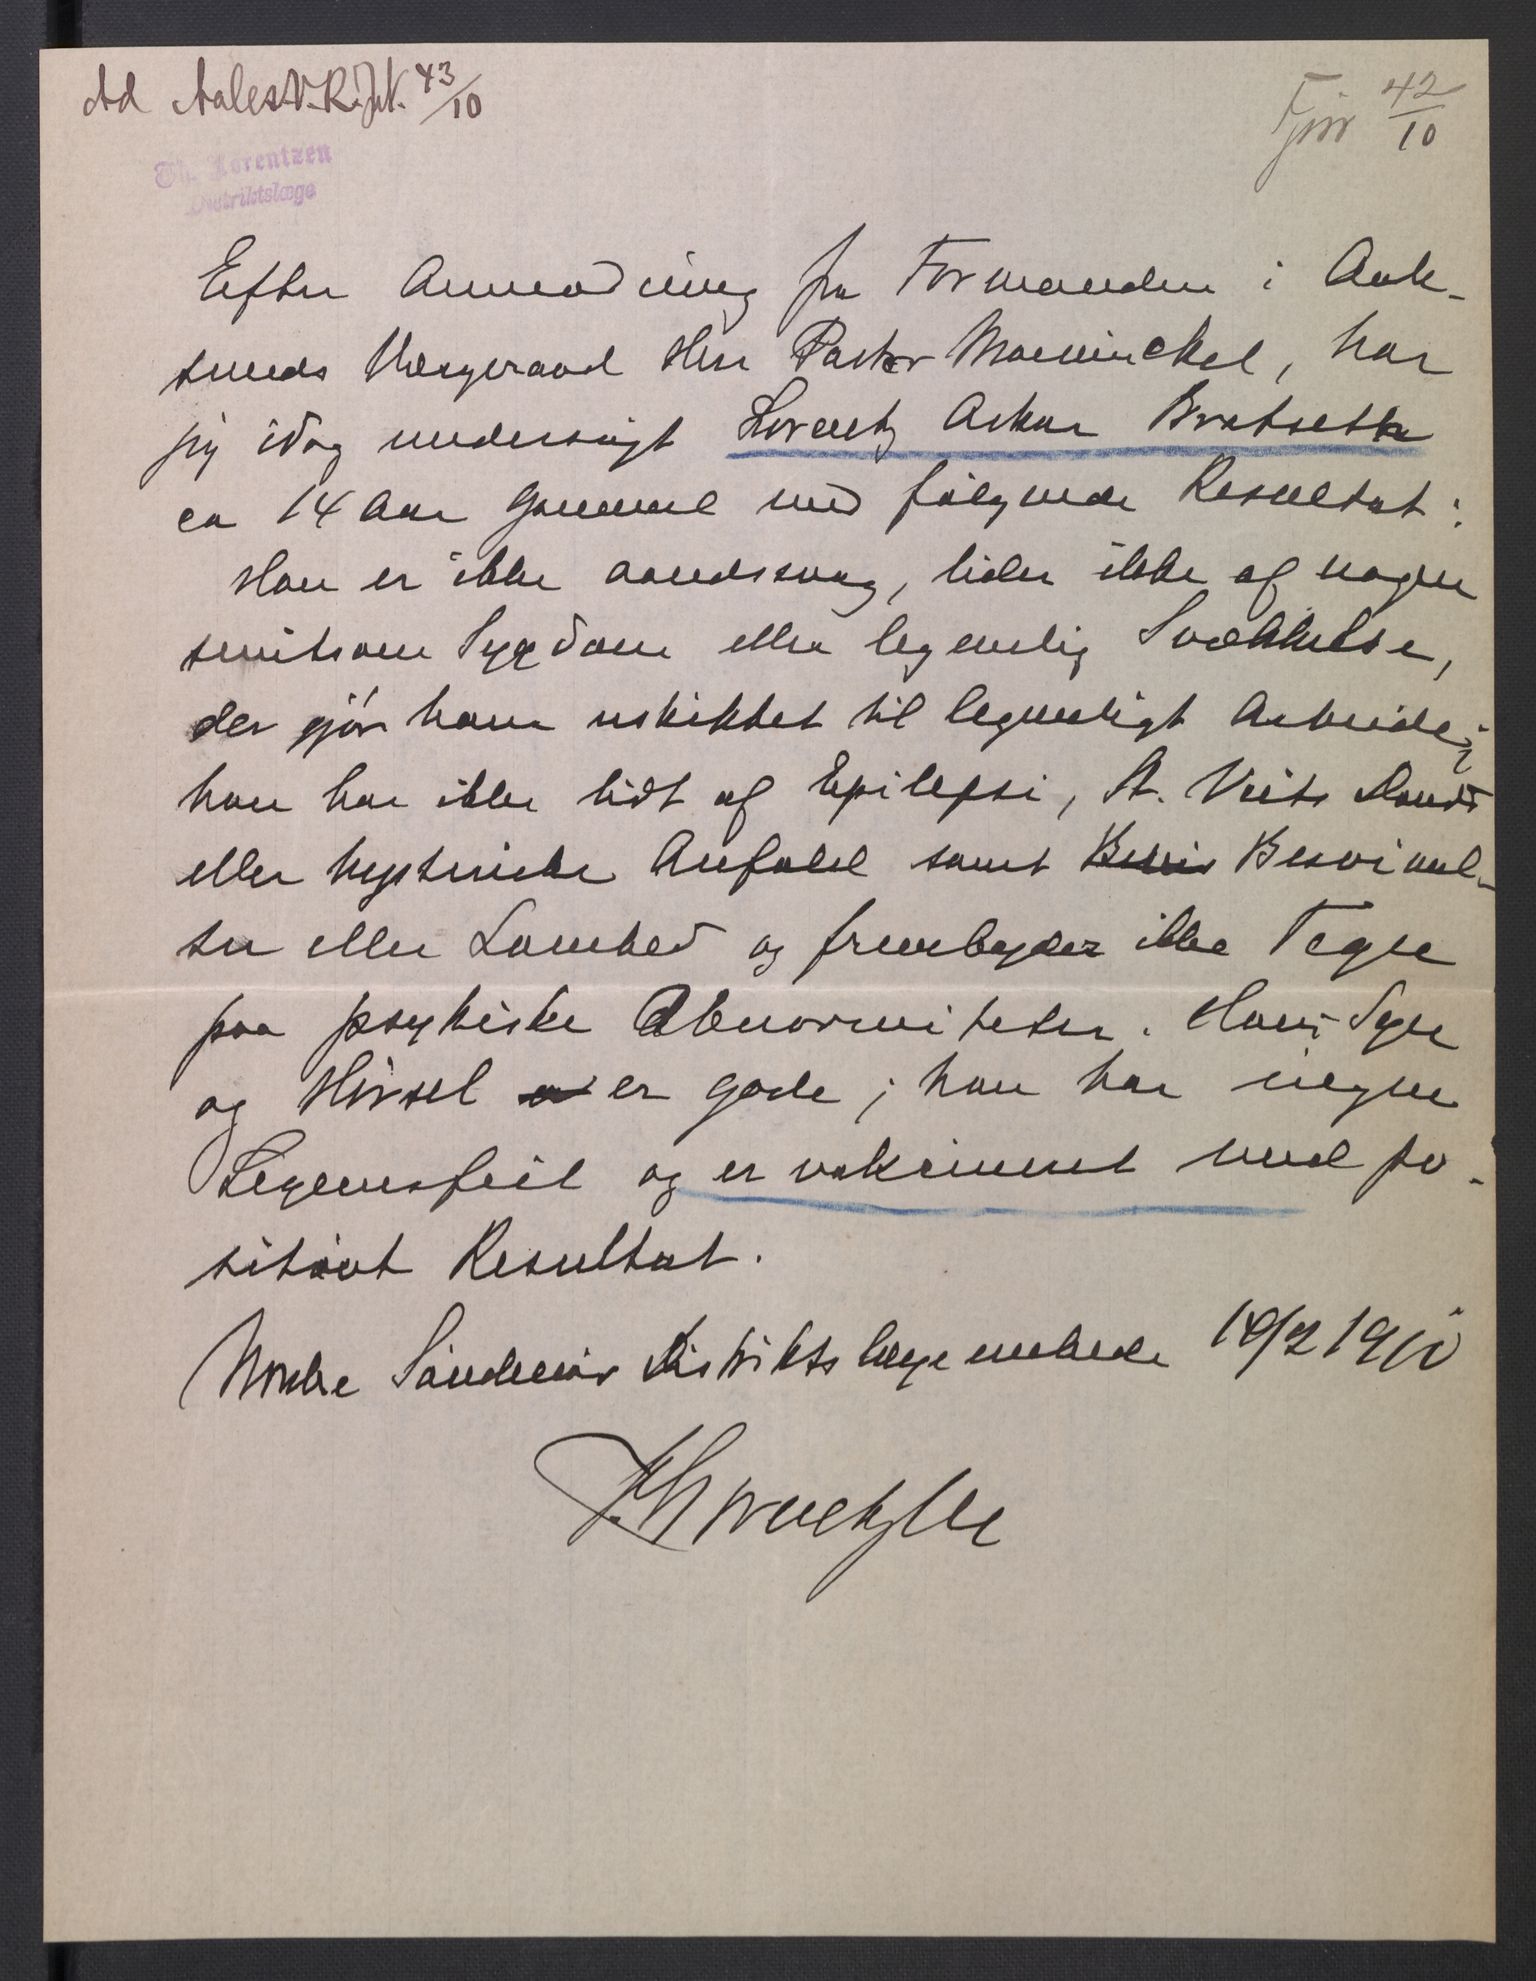 Ad Aales V.R. JN. 43/10
Fjör 42/10
Th. Lorentzen
Distriktslæge
Efter Anmodning fra Formanden i Aale-
sunds Værgeraad Herr Pastor Mowinckel, har
jeg idag undersøgt Lorentz Oskar Bratseth
ca 14 Aar gammel med følgende Resultat:
Han er ikke aandssvag, lider ikke af nogen
smitsom Sygdom eller legemlig Svækkelse,
der gjør ham uskikket til legemligt Arbeide;
han har ikke lidt af Epilepsi, St. Veits Dands
eller hysteriske Anfald samt Besvi Besvimel-
ser eller Lamhed og frembyder ikke Tegn
paa psykiske Abnormiteter. Hans Syn
og Hørsel er gode; han har ingen
Legemsfeil og er vakcineret med po-
sitivt Resultat.
Nordre Søndmør Distriktslægeembede 18/2 1910